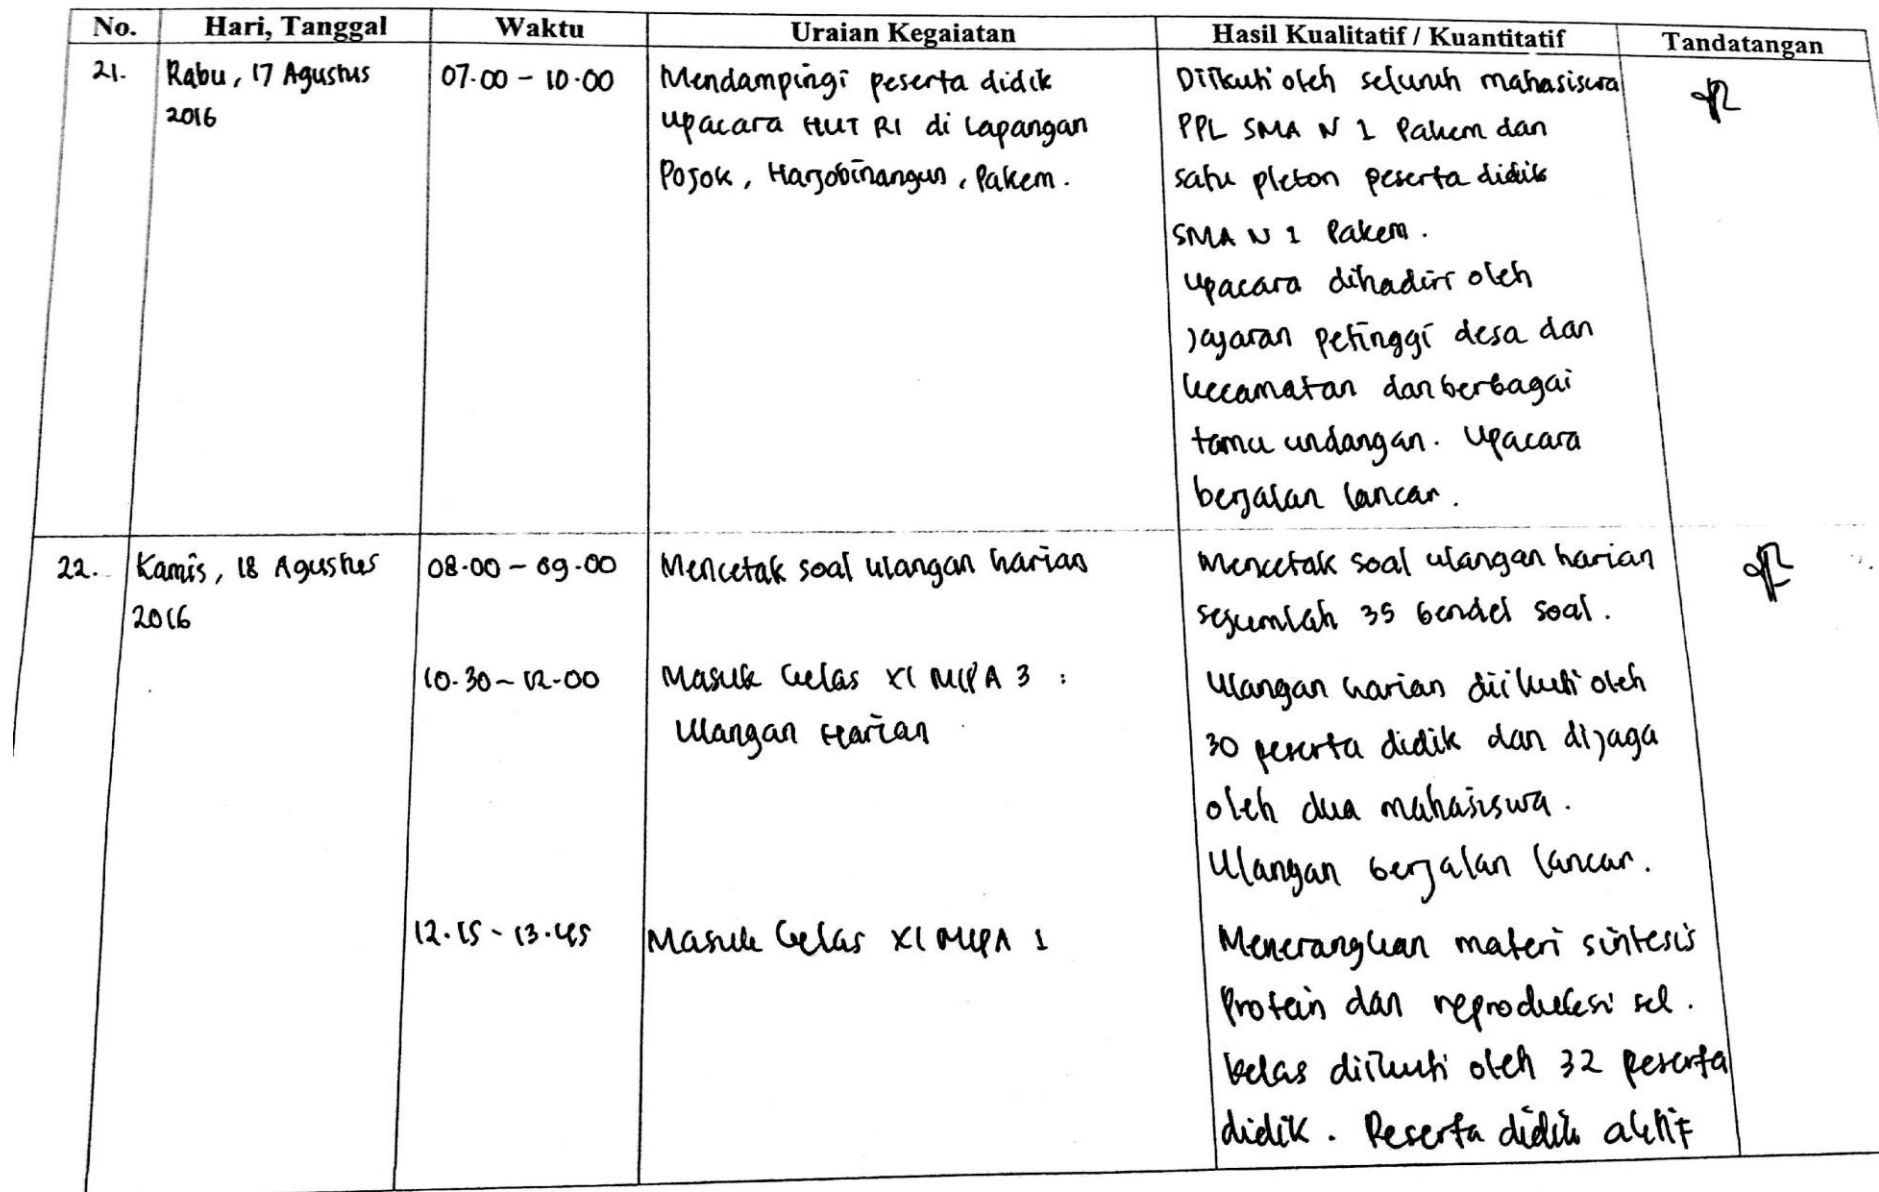 No. Hari, Tanggal Waktu Uraian Kegaiatan Hasil Kualitatif / Kuantitatif Tandatangan
21. Rabu, 17 Agustus 07.00 - 10.00 Mendampingi peserta didik Diikuti oleh seluruh mahasiswa
2016 upacara HUT RI di Lapangan PPL SMA N 1 Pakem dan
Pojok, Harjobinangun, Pakem. satu pleton peserta didik
SMA N 1 Pakem.
Upacara dihadiri oleh
jajaran petinggi desa dan
kecamatan dan berbagai
tamu undangan. Upacara
berjalan lancar.
22. Kamis, 18 Agustus 08.00 - 09.00 Mencetak soal ulangan harian Mencetak soal ulangan harian
2016 sejumlah 35 bendel soal.
10.30 - 12.00 Masuk kelas XI MIPA 3 : Ulangan harian diikuti oleh
Ulangan Harian 30 peserta didik dan dijaga
oleh dua mahasiswa.
Ulangan berjalan lancar.
12.15 - 13.45 Masuk kelas XI MIPA 1 Menerangkan materi sintesis
Protein dan reproduksi sel.
kelas diikuti oleh 32 peserta
didik. Peserta didik aktif